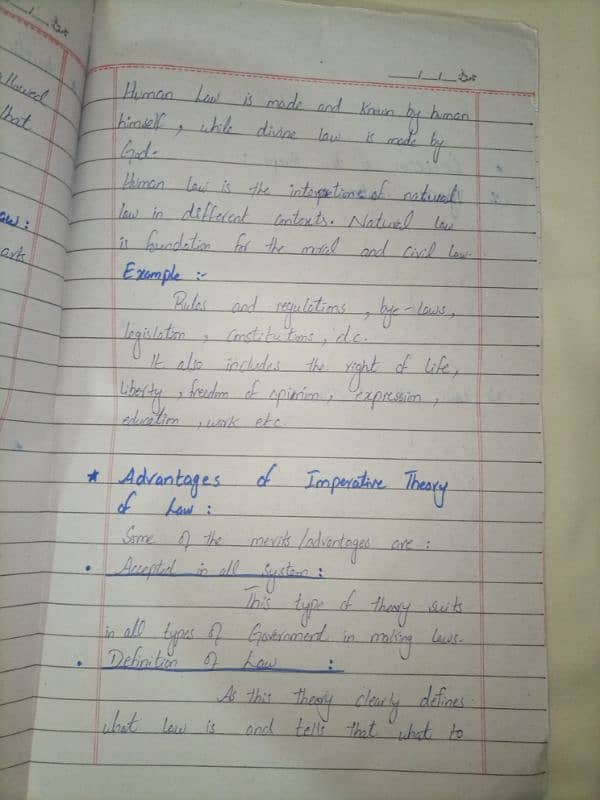 تاریخ
llowed
that
aw:
ark
Human Law is made and known by human
himself, while divine law is made by
God.
Human law is the interpetions of natural
law in different contexts. Natural law
is foundation for the moral and civil law.
Example :-
Rules and regulations, bye-laws,
legislation, constitutions, etc.
It also includes the right of life,
liberty, freedom of opinion, expression,
education, work etc.
* Advantages of Imperative Theory
of Law :
Some of the merits/advantages are :
• Accepted in all system :
This type of theory suits
in all types of Government in making laws.
• Definition of Law :
As this theory clearly defines
what law is and tells that what to